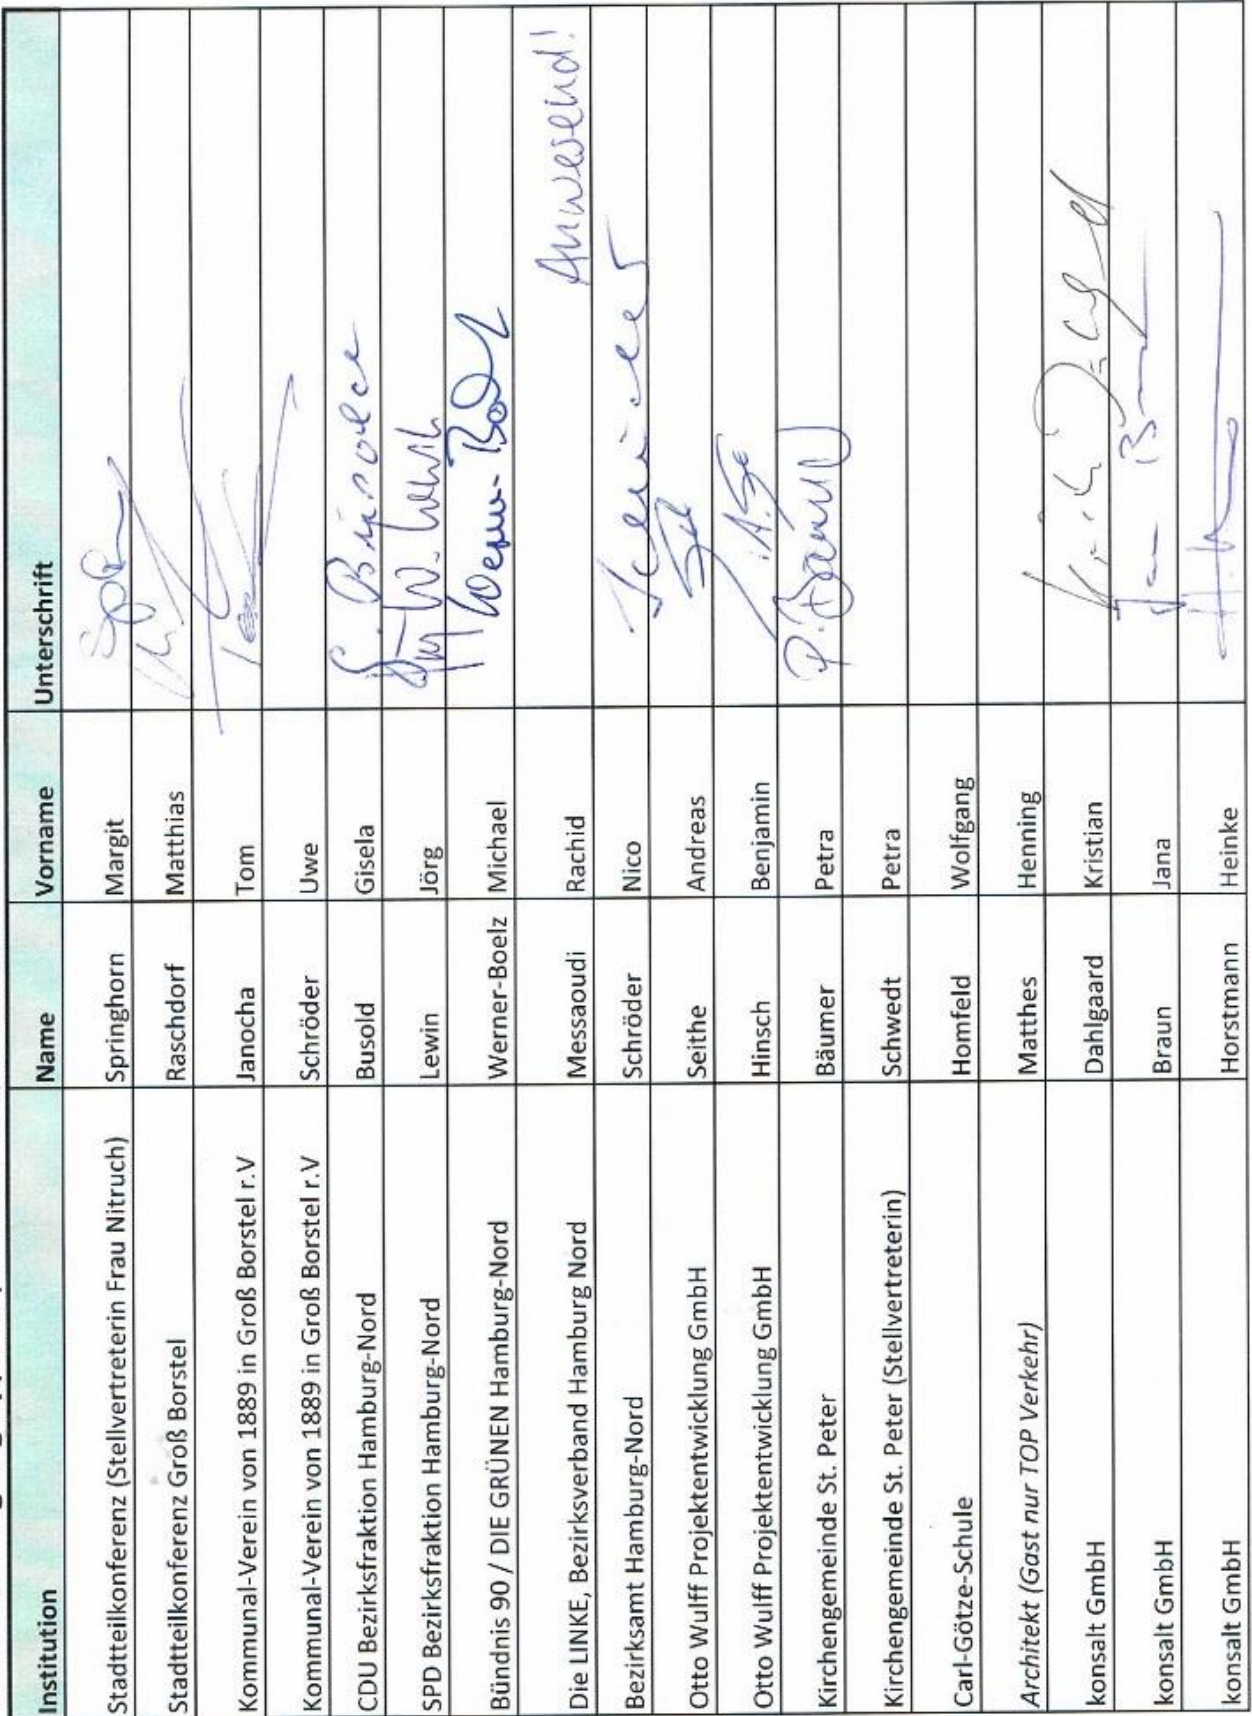 Institution Name Vorname Unterschrift
Stadtteilkonferenz (Stellvertreterin Frau Nitruch) Springhorn Margit
Stadtteilkonferenz Groß Borstel Raschdorf Matthias
Kommunal-Verein von 1889 in Groß Borstel r.V Janocha Tom
Kommunal-Verein von 1889 in Groß Borstel r.V Schröder Uwe
CDU Bezirksfraktion Hamburg-Nord Busold Gisela
SPD Bezirksfraktion Hamburg-Nord Lewin Jörg
Bündnis 90 / DIE GRÜNEN Hamburg-Nord Werner-Boelz Michael
Die LINKE, Bezirksverband Hamburg Nord Messaoudi Rachid Anwesend!
Bezirksamt Hamburg-Nord Schröder Nico
Otto Wulff Projektentwicklung GmbH Seithe Andreas
Otto Wulff Projektentwicklung GmbH Hinsch Benjamin
Kirchengemeinde St. Peter Bäumer Petra
Kirchengemeinde St. Peter (Stellvertreterin) Schwedt Petra
Carl-Götze-Schule Homfeld Wolfgang
Architekt (Gast nur TOP Verkehr) Matthes Henning
konsalt GmbH Dahlgaard Kristian
konsalt GmbH Braun Jana
konsalt GmbH Horstmann Heinke